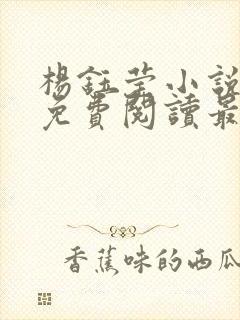 楊鈺瑩小說
免費閱讀最
香蕉味的西瓜